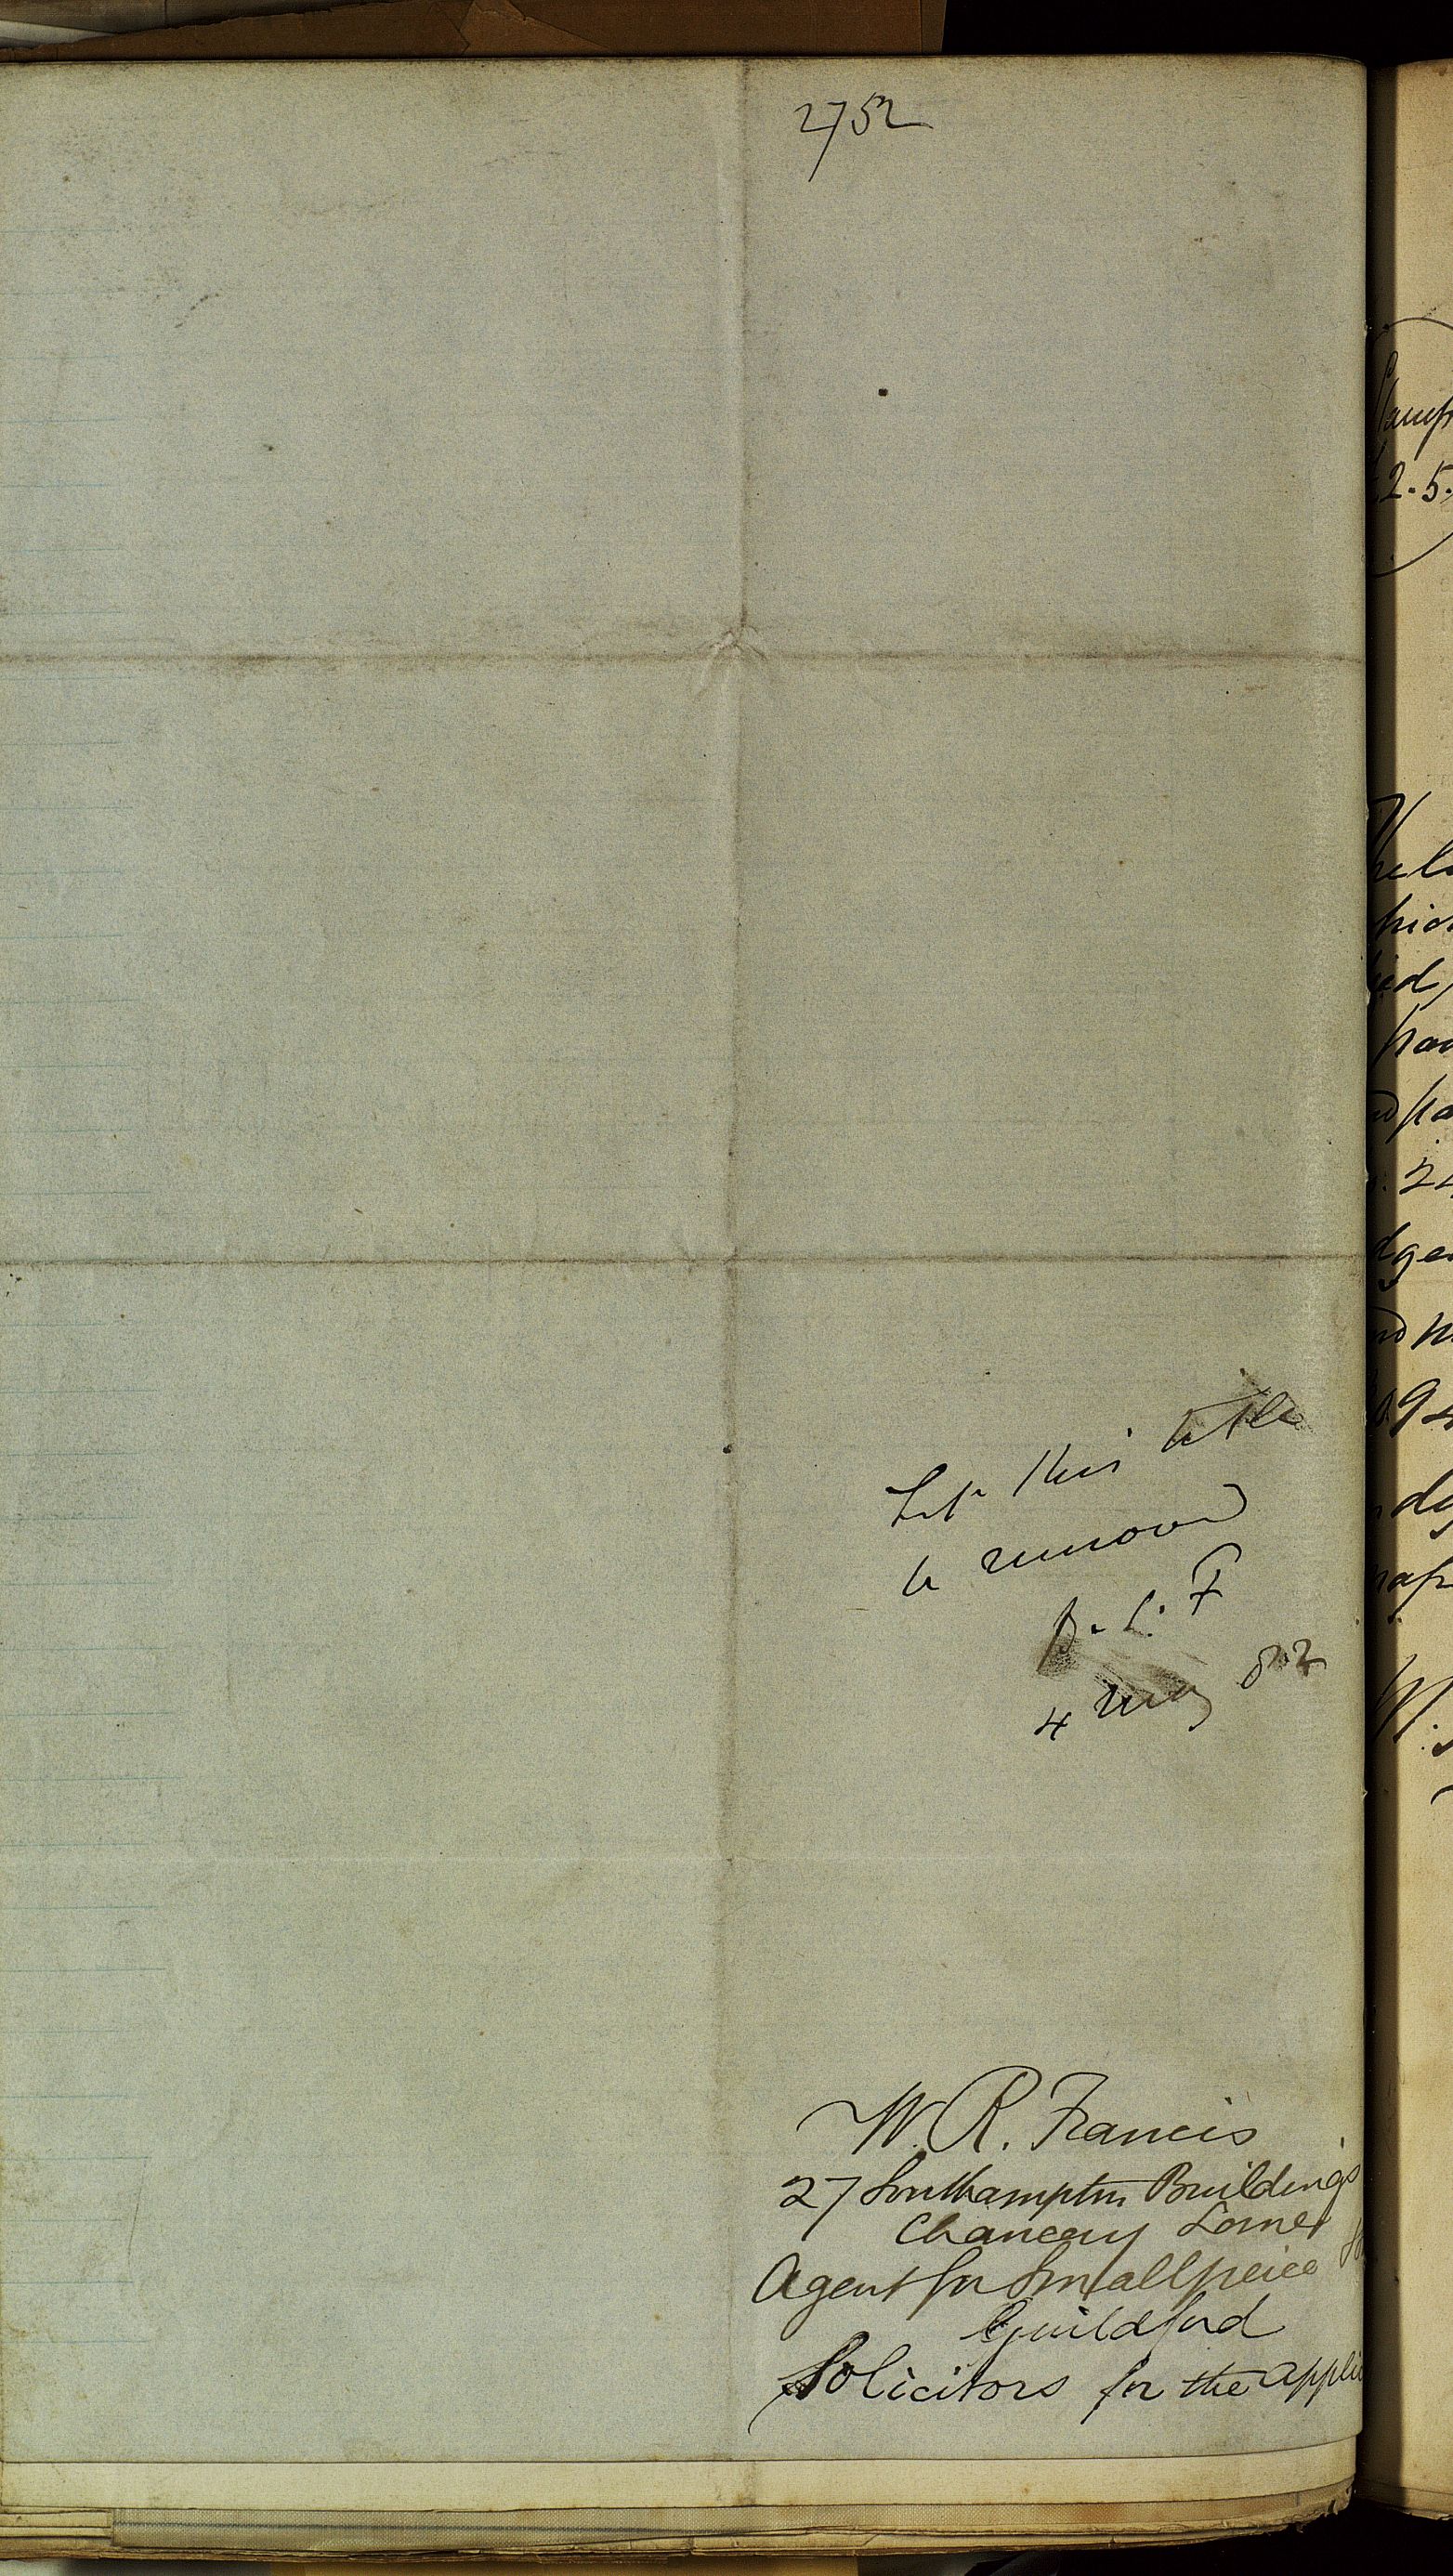 2752
Let this title
be removed
B. L. F
4 May 82
W. R. Francis
27 Southampton Buildings
Chancery Lane
Agent for Smallpeice
Guildford
Solicitors for the applic